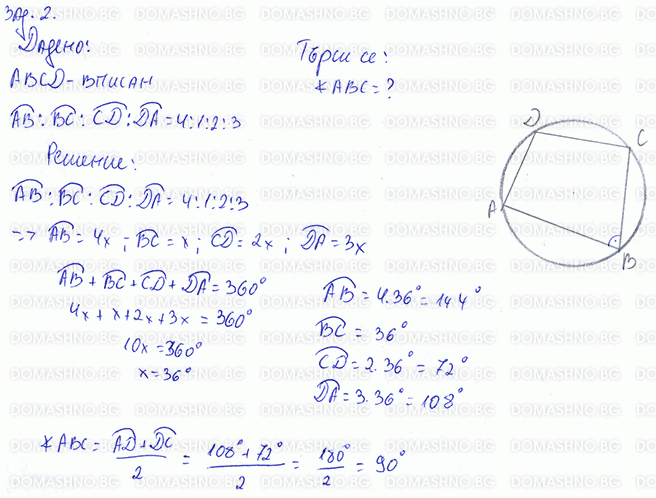 Зад. 2.
Дадено:
Търси се:
ABCD - вписан
∢ABC = ?
A͡B : B͡C : C͡D : D͡A = 4:1:2:3
Решение:
A͡B : B͡C : C͡D : D͡A = 4:1:2:3
=> A͡B = 4x ; B͡C = x ; C͡D = 2x ; D͡A = 3x
A͡B + B͡C + C͡D + D͡A = 360°
4x + x + 2x + 3x = 360°
10x = 360°
x = 36°
A͡B = 4.36° = 144°
B͡C = 36°
C͡D = 2.36° = 72°
D͡A = 3.36° = 108°
∢ABC = (A͡D + D͡C)/2 = (108° + 72°)/2 = 180°/2 = 90°
D
C
A
B
DOMASHNO.BG